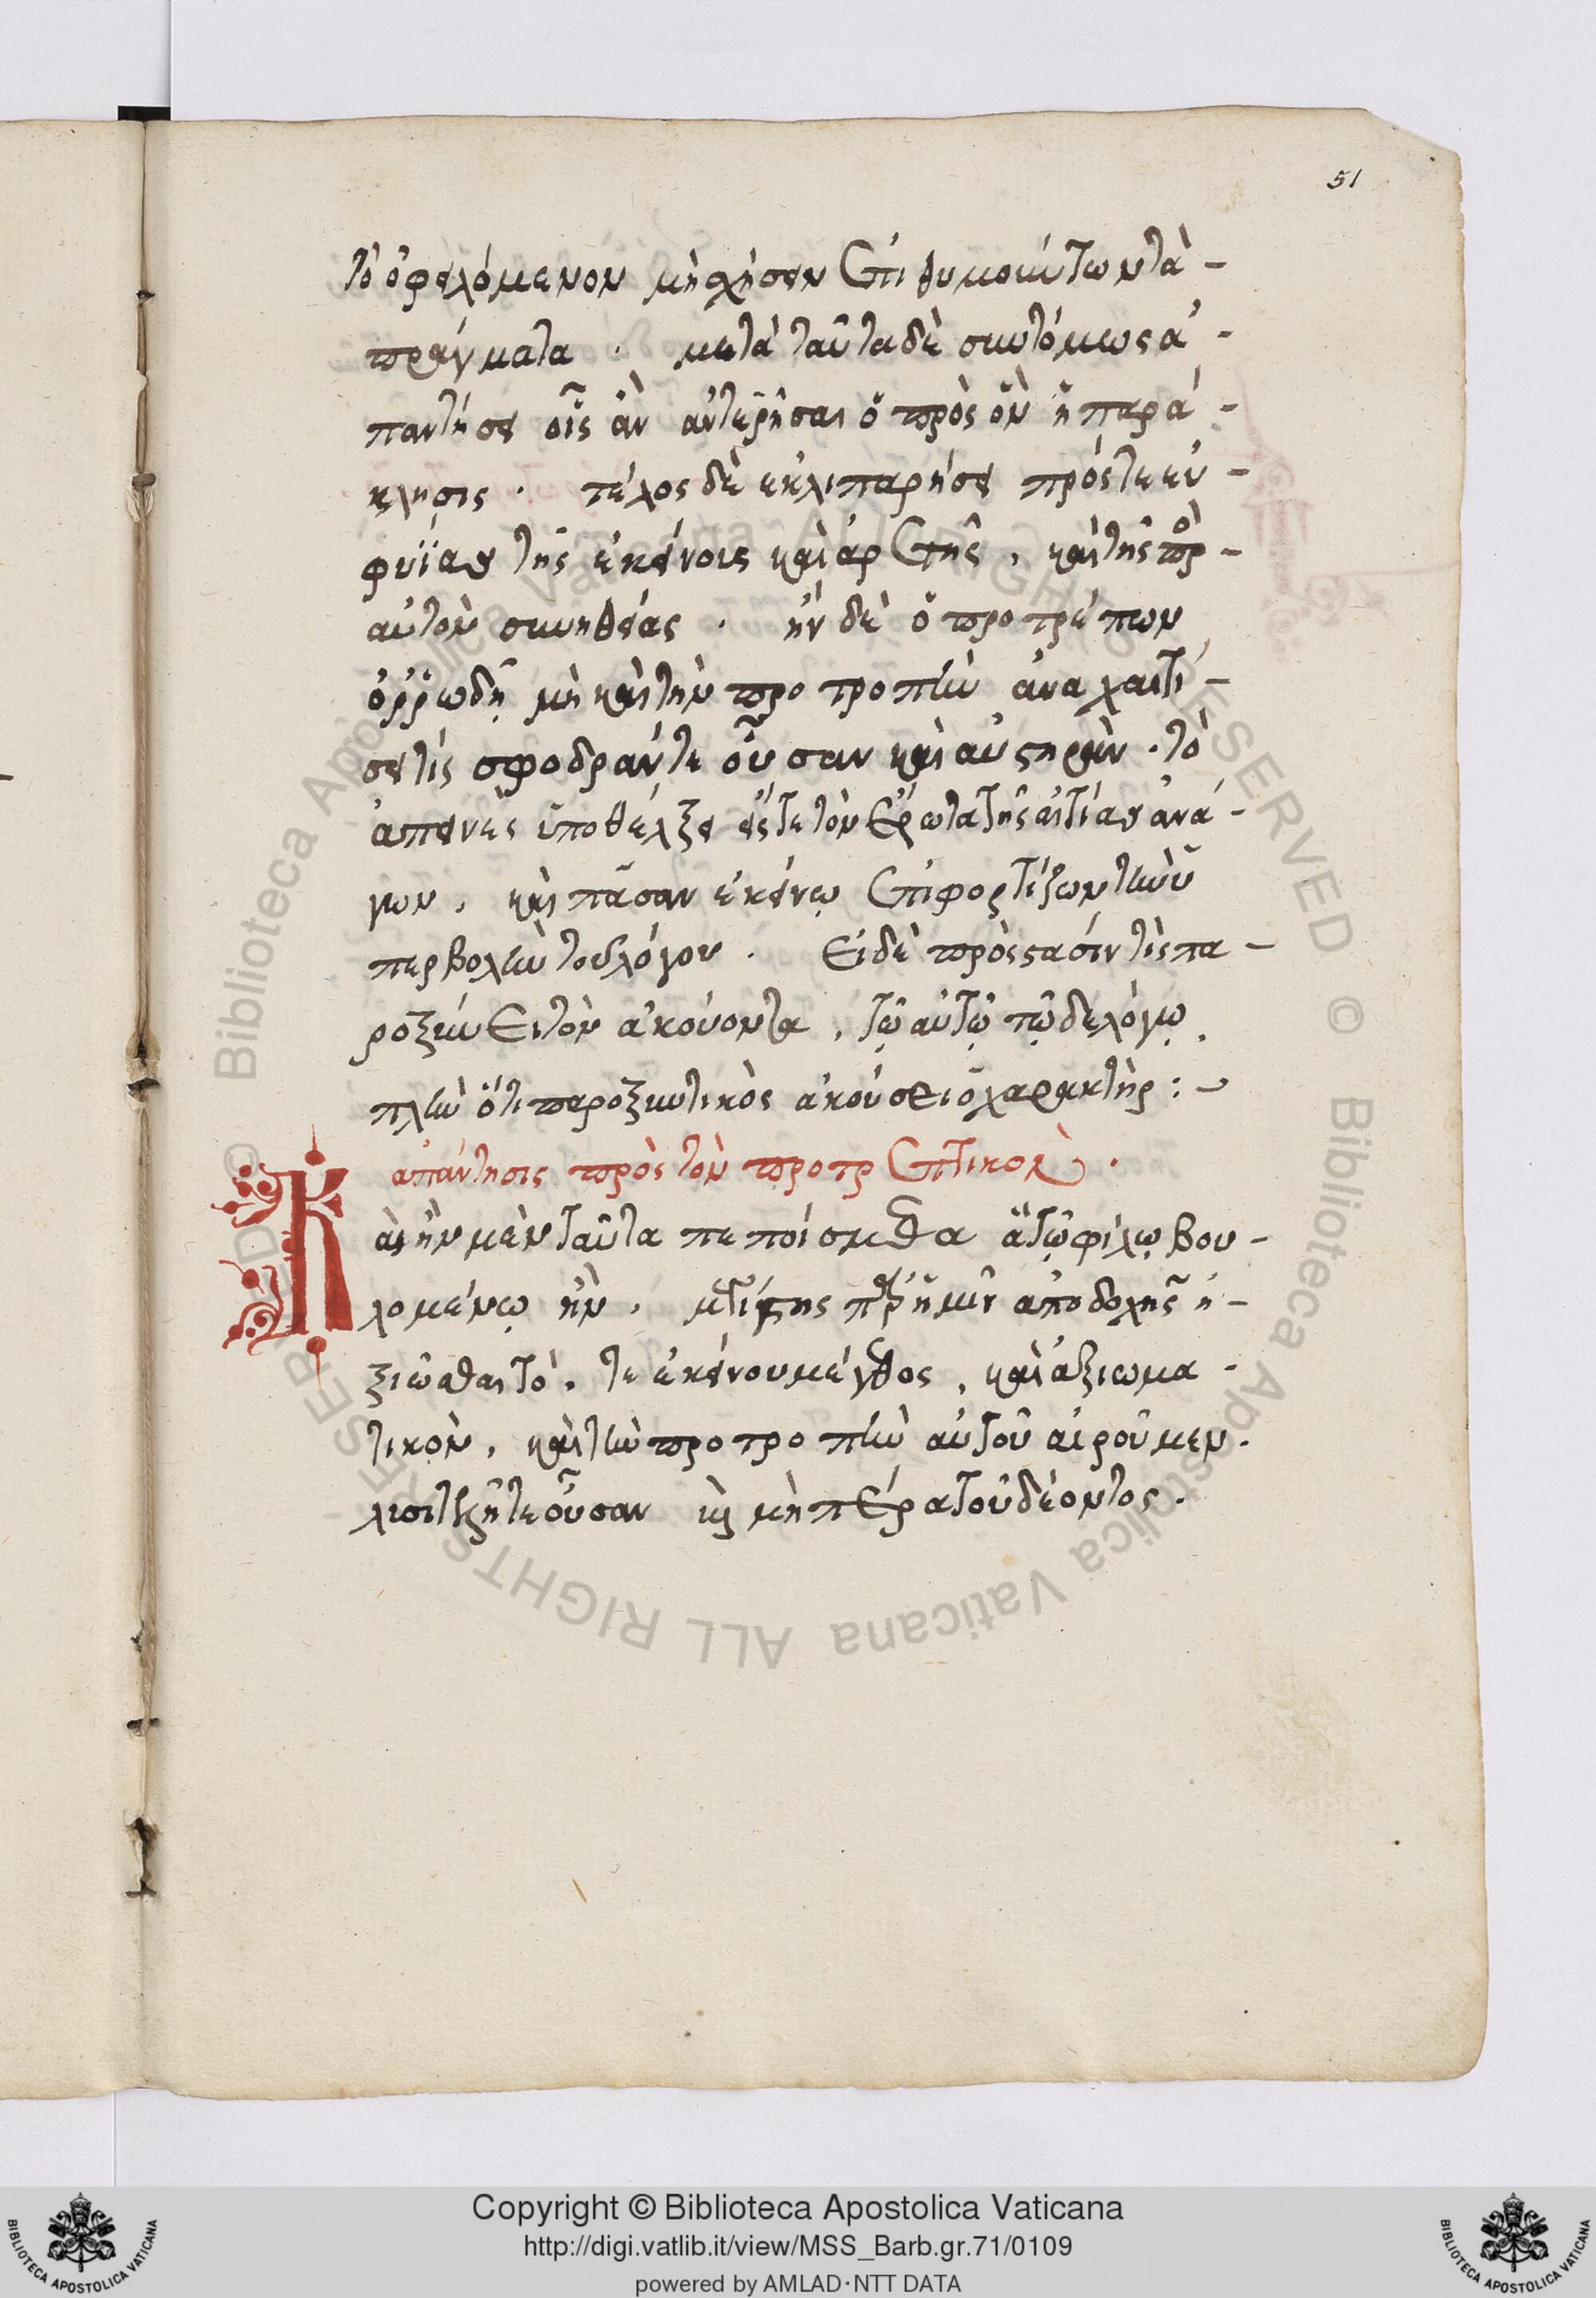 51
τὸ ὀφειλόμενον μὴ χήσειν ἐπιθυμούντων τὰ -
πράγματα . μετὰ ταῦτα δὲ συντόμως ἀ -
παντήσει οἷς ἂν ἀντερῆσαι ὁ πρὸς ὃν ἡ παρά -
κλησις . τέλος δὲ ἐκλιπαρήσει πρός τε εὐ -
φυΐας τῆς ἐκείνοις καὶ ἀρετῆς , καὶ τῆς πρὸ -
αὐτὸν συνηθείας . ἢν δὲ ὁ προτρέπων
ὀρρωδῇ μὴ καὶ τὴν προτροπὴν ἀναχαιτί -
σει τίς σφοδράν τε οὖσαν καὶ αὐστηρὰν . τὸ
ἀπεινὲς ὑποθέλξει εἴς τε τὸν ἔρωτα τῆς αἰτίας ἀνά -
γων , καὶ πᾶσαν ἐκείνῳ ἐπιφορτίζων τὴν ὑ
περβολὴν τοῦ λόγου . Εἰ δὲ πρὸς στασίν τὶς πα -
ροξύνει τὸν ἀκούοντα , τῷ αὐτῷ τῷδε λόγῳ .
πλὴν ὅτι παροξυντικὸς ἀκούσει ὁ χαρακτήρ : -
ἀπάντησις πρὸς τὸν προτρεπτικόν .
Καὶ ἢν μὲν ταῦτα πεποίσμεθα ἃ τῷ φίλῳ βου -
λομένῳ ἦν . μετίστης παρ' ἡμῖν ἀποδοχῆς ἠ -
ξιῶσθαι τό , τε ἐκείνου μέγεθος , καὶ ἀξιωμα -
τικὸν , καὶ τὴν προτροπὴν αὐτοῦ αἱροῦμεν .
λυσιτελῆ τε οὖσαν καὶ μὴ πέρα τοῦ δέοντος .
Copyright © Biblioteca Apostolica Vaticana
http://digi.vatlib.it/view/MSS_Barb.gr.71/0109
powered by AMLAD·NTT DATA